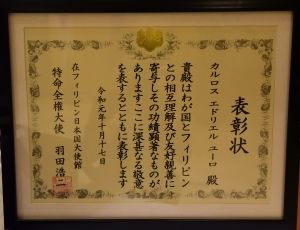 表彰状
カルロス エドリエル ユーロ 殿
貴殿はわが国とフィリピン
との相互理解及び友好親善に
寄与しその功績顕著なものが
ありますここに深甚なる敬意
を表するとともに表彰します
令和元年十月十七日
在フィリピン日本国大使館
特命全権大使 羽田浩二